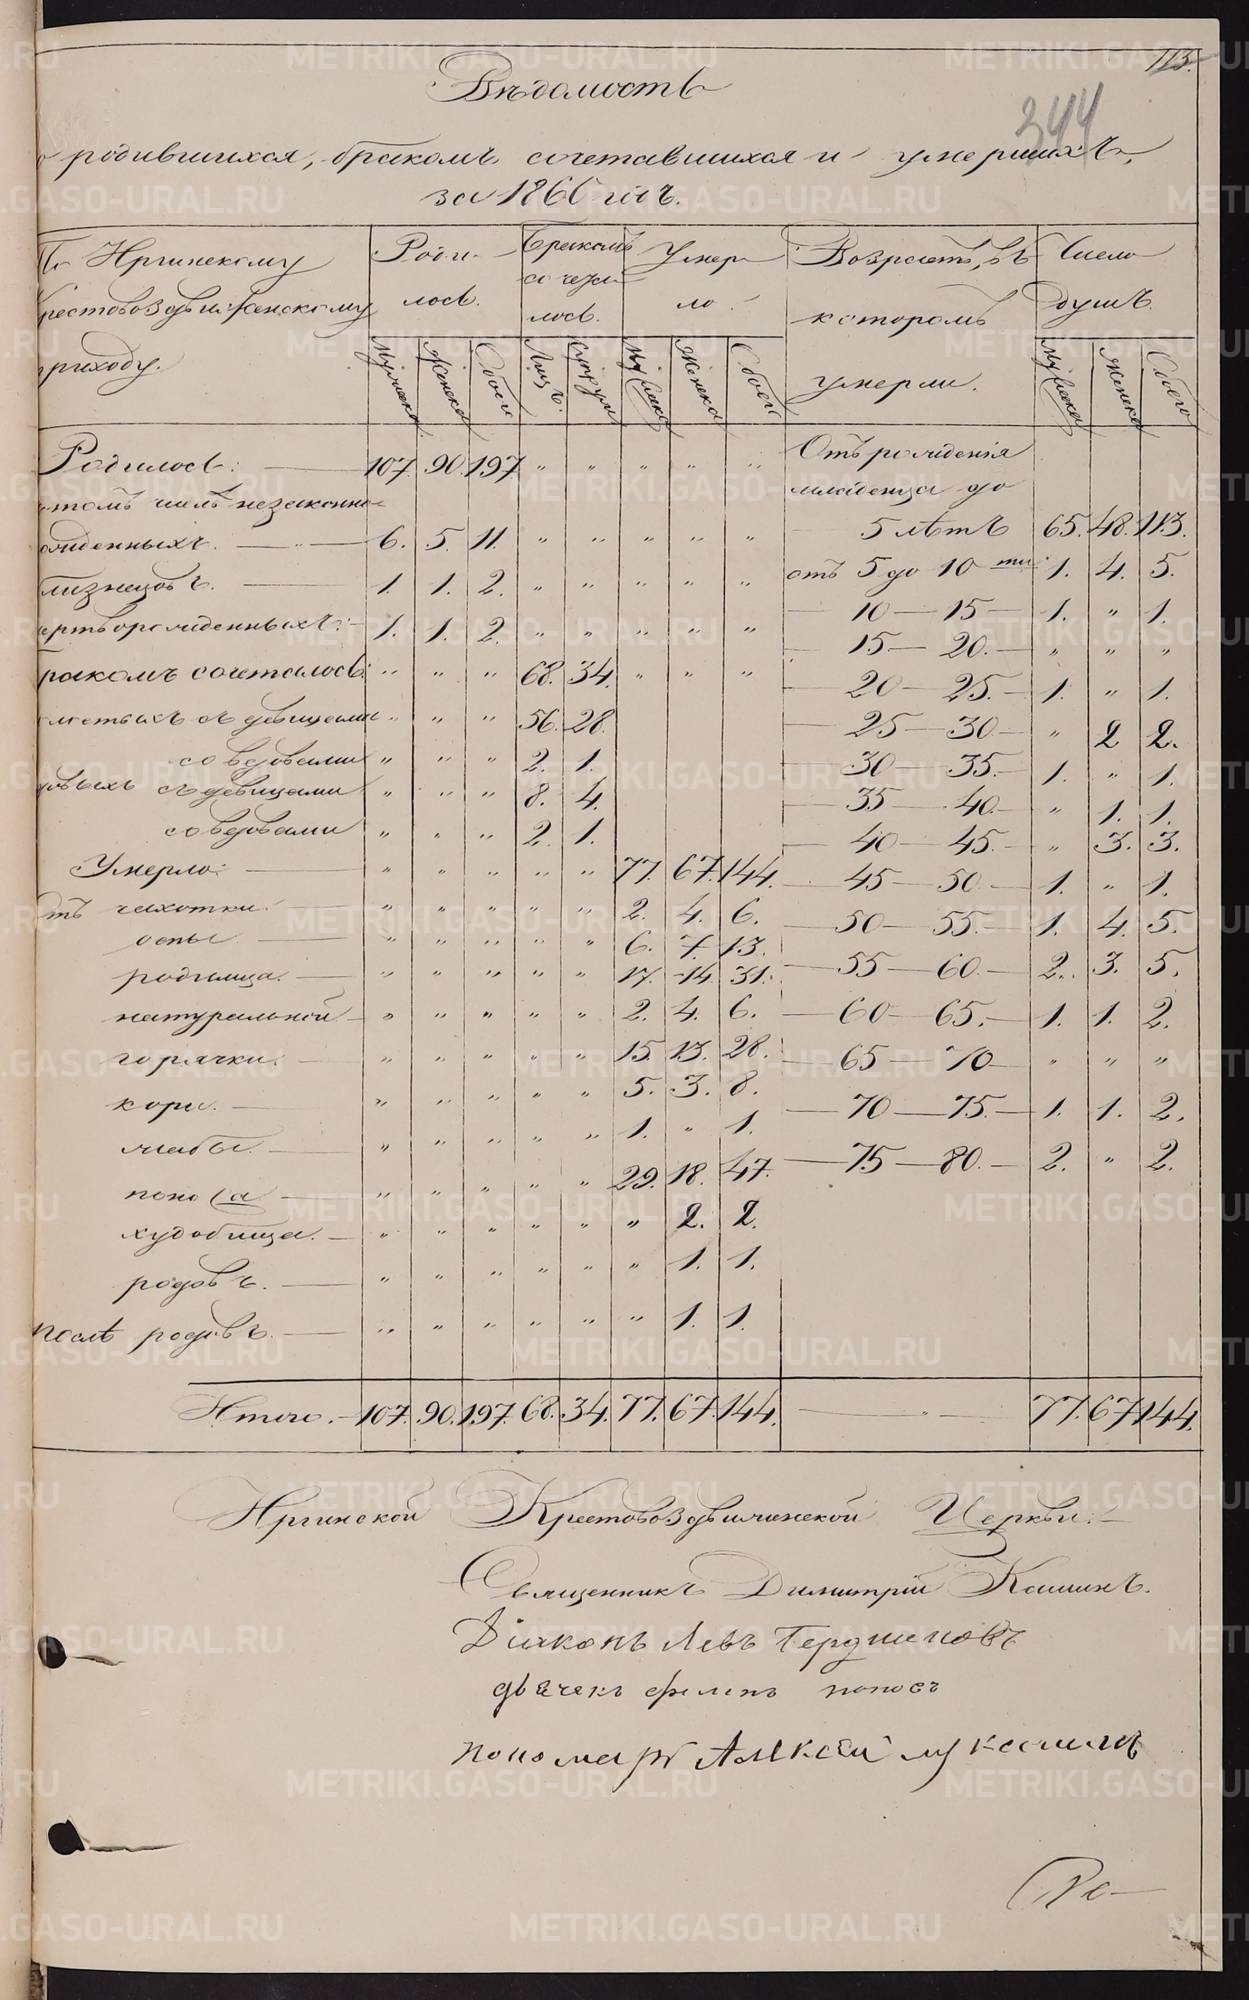 113.
344
Вѣдомость
о родившихся, бракомъ сочетавшихся и умершихъ,
за 1866 годъ.
По Иргинскому
Крестовоздвиженскому
приходу.
Роди-
лось.
Бракомъ
сочета
лось.
Умер
ло.
Возрастъ, въ
которомъ
умерли.
Число
душъ.
Мужска Женска Обоего Лицъ. Супруж Мужска Женска Обоего Мужска Женска Обоего
Родилось: 107. 90. 197. " " " " "
томъ числѣ незаконно-
рожденныхъ. 6. 5. 11. " " " " "
близнецовъ. 1. 1. 2. " " " " "
мертворожденныхъ: 1. 1. 2. " " " " "
Бракомъ сочеталось: " " " 68. 34. " " "
холостыхъ съ дѣвицами " " " 56. 28.
со вдовами " " " 2. 1.
вдовыхъ съ дѣвицами " " " 8. 4.
со вдовами " " " 2. 1.
Умерло: " " " " " 77. 67. 144.
отъ чахотки. " " " " " 2. 4. 6.
оспы. " " " " " 6. 7. 13.
родимца. " " " " " 17. 14. 31.
натуральной " " " " " 2. 4. 6.
горячки. " " " " " 15. 13. 28.
кори. " " " " " 5. 3. 8.
жабы. " " " " " 1. " 1.
поноса " " " " " 29. 18. 47.
худобища. " " " " " " 2. 2.
родовъ. " " " " " " 1. 1.
послѣ родовъ. " " " " " " 1. 1.
Отъ рожденія
младенца до
5 лѣтъ 65. 48. 113.
отъ 5 до 10 ти 1. 4. 5.
10 — 15 — 1. " 1.
15 — 20. — " " "
20 — 25. — 1. " 1.
25 — 30. — " 2 2.
30 — 35. — 1. " 1.
35 — 40. — " 1. 1.
40 — 45. — " 3. 3.
45 — 50. — 1. " 1.
50 — 55. — 1. 4. 5.
55 — 60. — 2. 3. 5.
60 — 65. — 1. 1. 2.
65 — 70 — " " "
70 — 75. — 1. 1. 2.
75 — 80. — 2. " 2.
Итого. — 107. 90. 197. 68. 34. 77. 67. 144. — " — 77. 67. 144.
Иргинской Крестовоздвиженской Церкви:
Священникъ Димитрій Кашинъ.
Діаконъ Левъ
дьячекъ поповъ
пономарь Алексей
METRIKI.GASO-URAL.RU